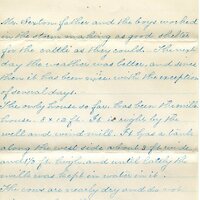 Mr. Sexton, father and the boys worked
in the storm making as good shelter
for the cattle as they could. The next
day the weather was better, and since
then it has been nice with the exception
of several days.
The only house so far has been the milk
house. 8 x 12 ft. It is right by the
well and wind mill. It has a tank
along the west side about 2 ft. wide
and 1½ ft. high, and until lately the
milk was kept in water in it.
The cows are nearly dry and do not